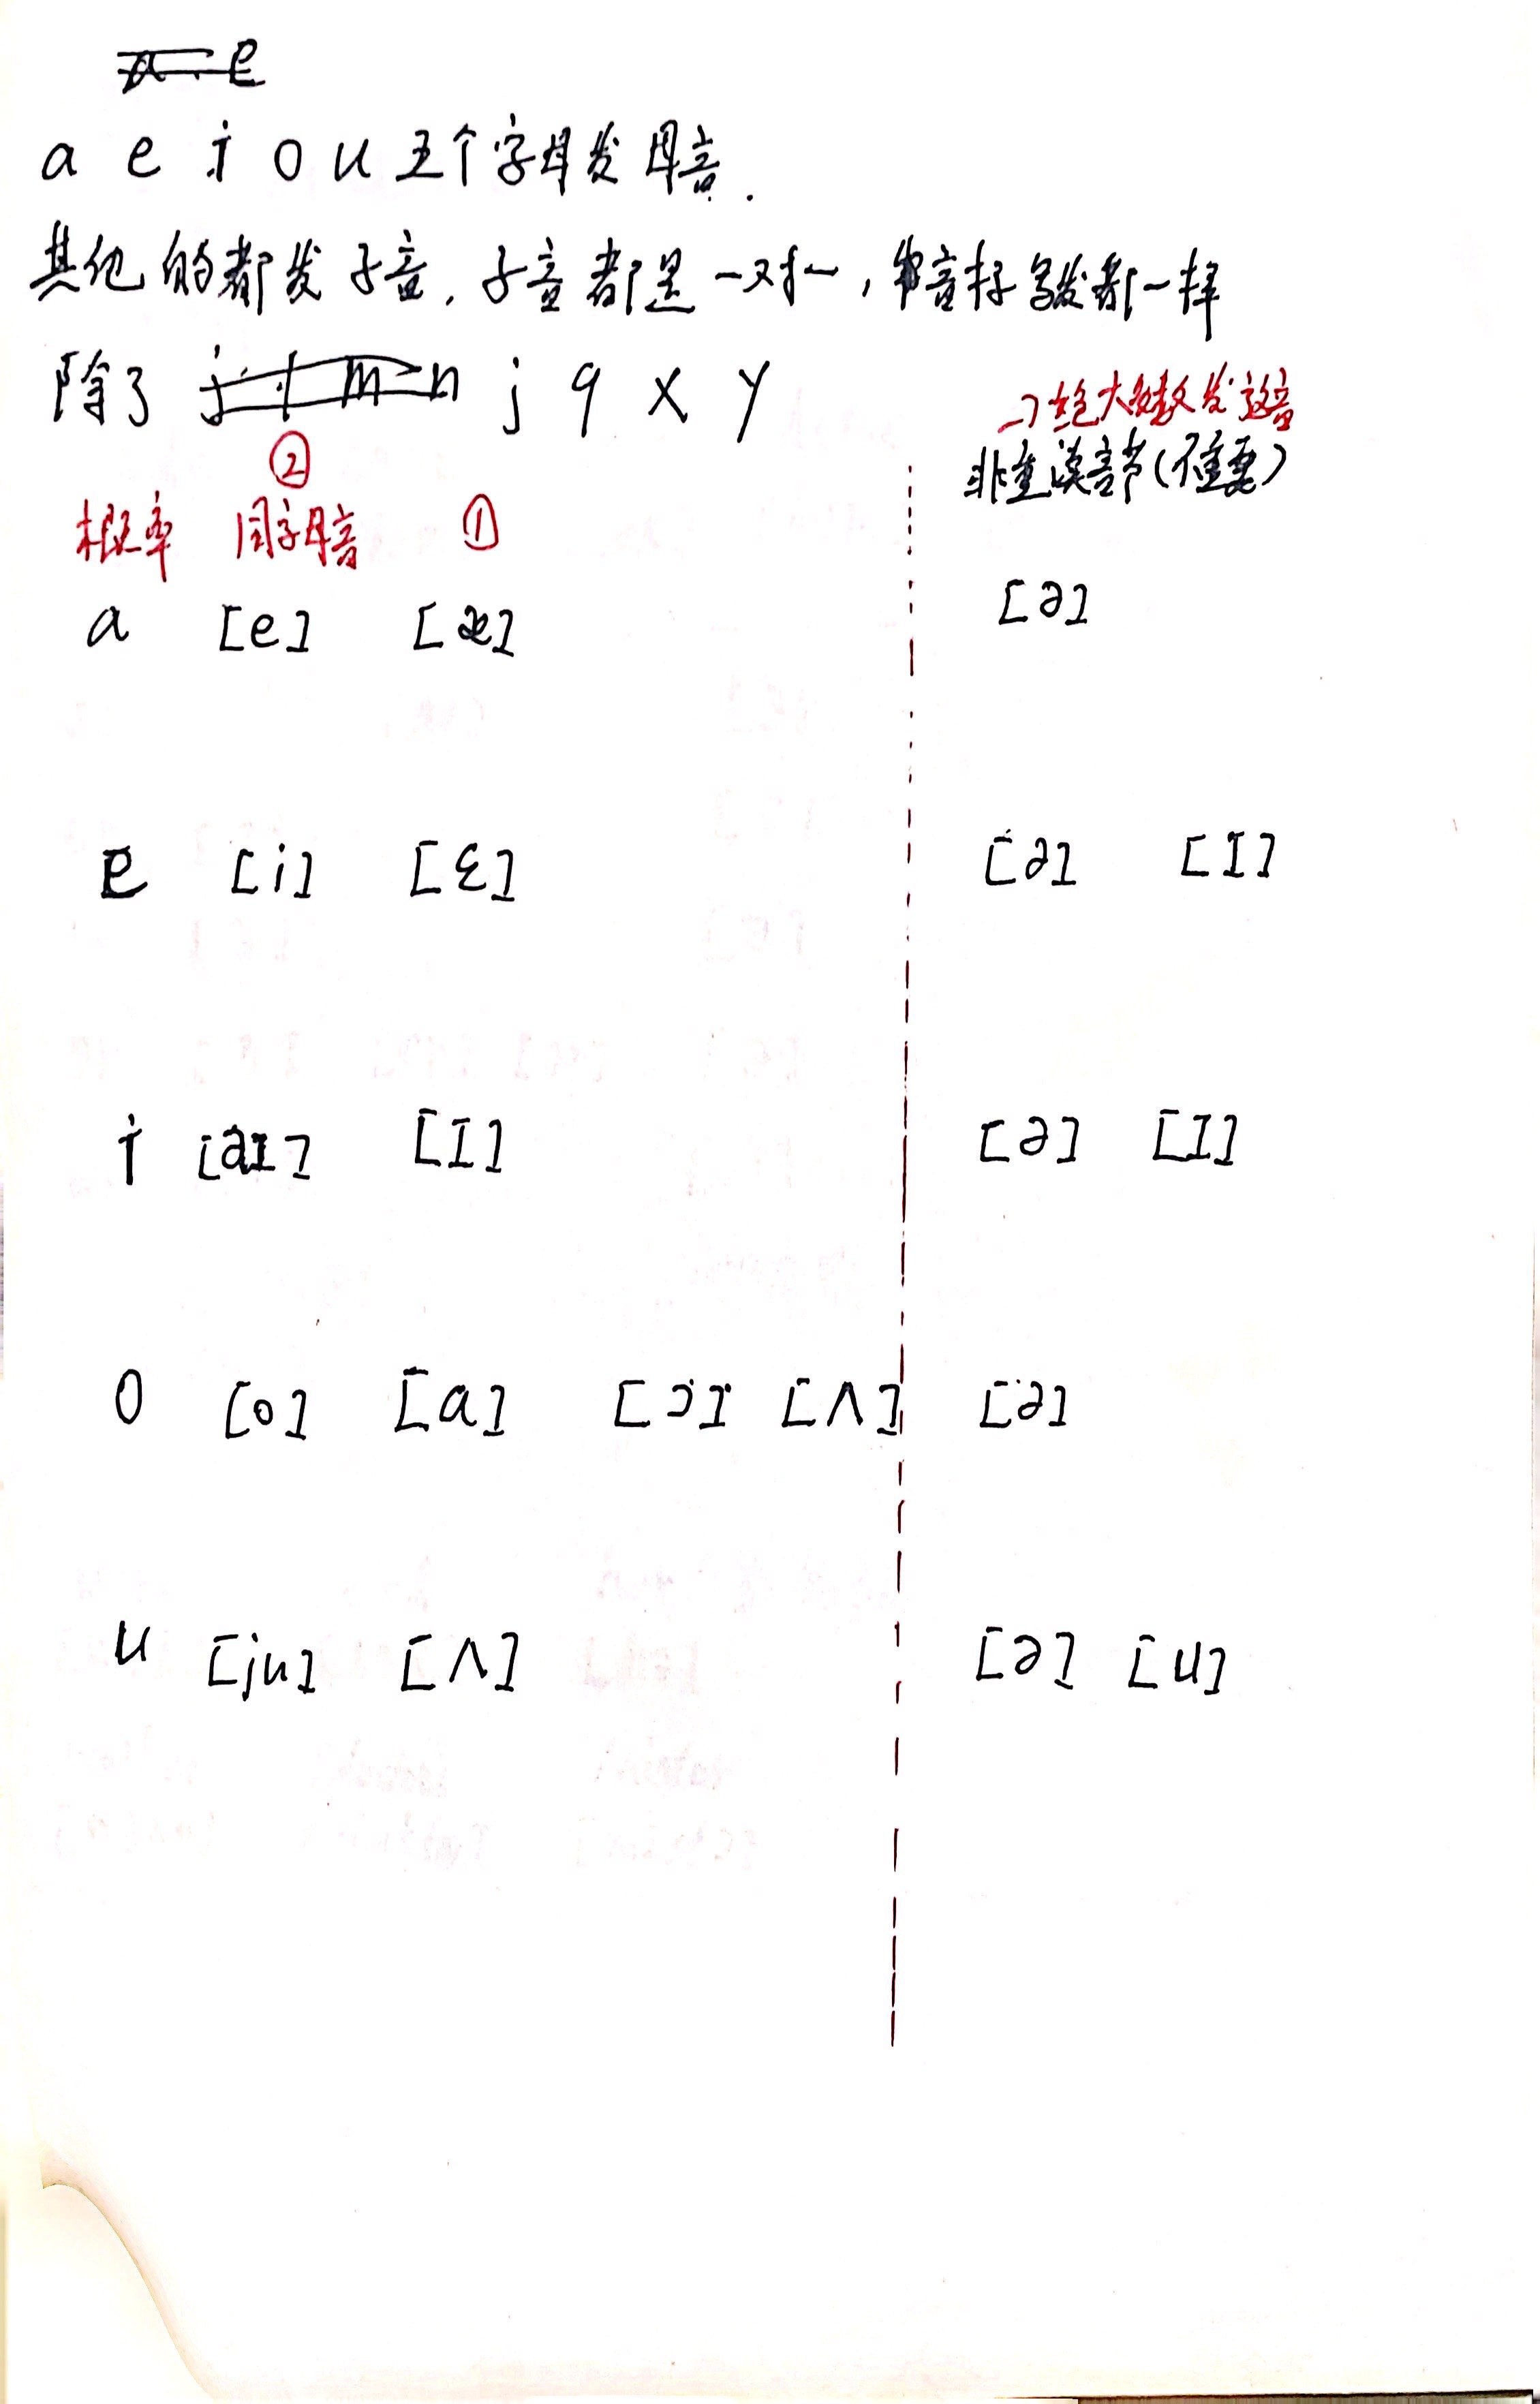 a e
a e i o u 五个字母发母音.
其他的都发子音, 子音都是一对一, 和音标多发都一样
除了 j l m n j q x y
→绝大多数发这音
非重读音节(不重要)
②
概率 同字母音 ①
a [e] [æ] [ə]
e [i] [ɛ] [ə] [I]
i [aɪ] [I] [ə] [I]
o [o] [a] [ɔ] [ʌ] [ə]
u [ju] [ʌ] [ə] [u]